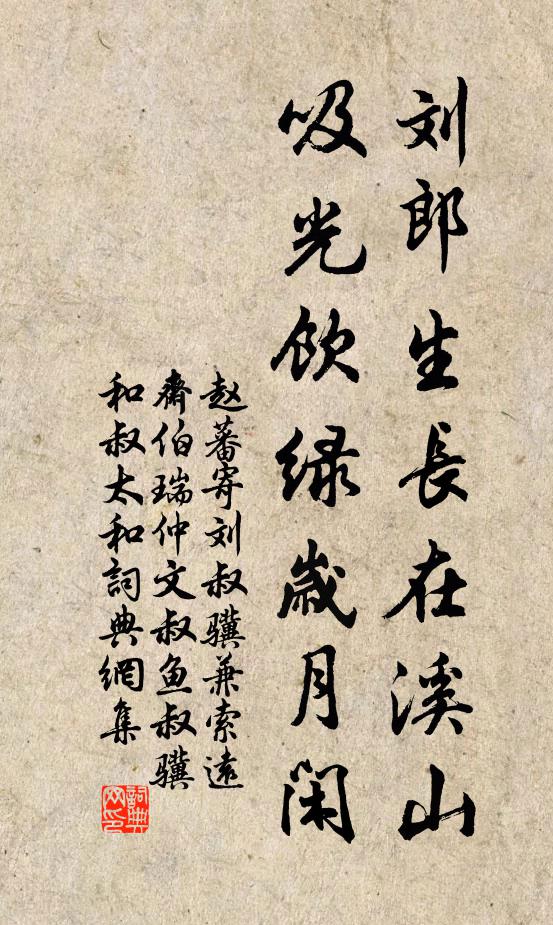 刘郎生長在溪山
吸光飲绿歲月閑
赵蕃寄刘叔骥兼索遠
齋伯瑞仲文叔鱼叔骥
和叔太和詞典網集
詞典网印